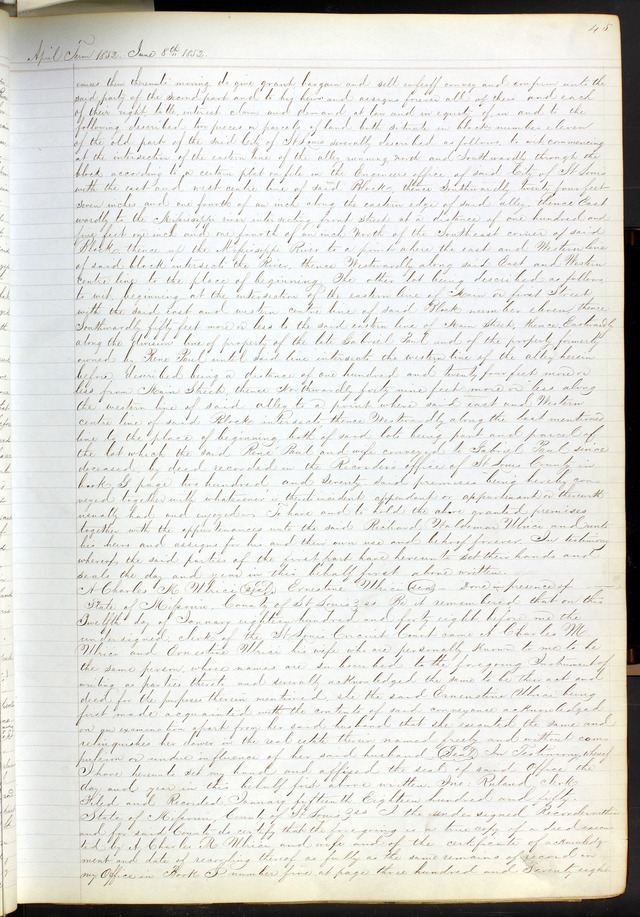 45
April Term 1852. June 8th 1852.
them thereunto moving do give grant bargain and sell enfeoff convey and confirm unto the
said party of the second part and to his heirs and assigns forever all of their and each
of their right title interest claim and demand at law and in equity of in and to the
following described two pieces or parcels of land both situate in block number eleven
of the old part of the said City of St Louis severally described as follows to wit commencing
at the intersection of the eastern line of the alley running north and southwardly through the
block according to a certain plat on file in the Engineers office of said City of St Louis
with the east and west centre line of said Block, thence Southwardly twenty four feet
seven inches and one fourth of an inch along the eastern edge of said alley thence East
wardly to the Mississippi river intersecting front street at a distance of one hundred and
five feet one inch and one fourth of an inch North of the Southeast corner of said
Block thence up the Mississippi River to a point where the east and Western line
of said block intersects the River, thence Westwardly along said East and Western
centre line to the place of beginning. The other lot being described as follows
to wit, beginning at the intersection of the eastern line of Main or first Street
with the said east and western centre line of said Block number eleven thence
Southwardly fifty feet more or less to the said eastern line of Main Street, thence Eastwardly
along the division line of property of the late Gabriel Paul and of the property formerly
owned by Rene Paul until said line intersects the western line of the alley herein
before described being a distance of one hundred and twenty four feet more or
less from Main Street, thence Northwardly forty nine feet more or less along
the western line of said alley to a point where said east and Western
centre line of said Block intersects thence Westwardly along the last mentioned
line to the place of beginning both of said lots being part and parcel of
the lot which the said Rene Paul and wife conveyed to Gabriel Paul since
deceased, by deed recorded in the Recorders office of St Louis County in
book page two hundred and seventy said premises being hereby con
veyed together with whatever is thereto incident appendant or appurtenant or therewith
usually had and enjoyed. To have and to hold the above granted premises
together with the appurtenances unto the said Richard Waldemar Ulrici and unto
his heirs and assigns to his and their own use and behoof forever. In testimony
whereof, the said parties of the first part have hereunto set their hands and
seals the day and year in this behalf first above written
A Charles M. Ulrici (seal) Ernestine Ulrici (seal) Done in presence of
State of Missouri, County of St Louis ss Be it remembered that on this
Twelfth day of January eighteen hundred and forty eight before me the
undersigned, clerk of the St Louis Circuit Court came A Charles M
Ulrici and Ernestine Ulrici his wife who are personally known to me to be
the same person whose names are subscribed to the foregoing Instrument of
writing as parties thereto and severally acknowledged the same to be their act and
deed for the purposes therein mentioned she the said Ernenstine Ulrici being
first made acquainted with the contents of said conveyance acknowledged
on an examination apart from her said husband that she executed the same and
relinquishes her dower in the real estate therein named freely and without com
pulsion or undue influence of her said husband (Seal) In Testimony whereof
I have hereunto set my hand and affixed the seal of said Office the
day and year in this behalf first above written Jno Ruland clerk
Filed and Recorded January fifteenth Eighteen hundred and fifty.
State of Missouri County of St Louis ss I the undersigned Recorder within
and for said County do certify that the foregoing is a true copy of a deed execu
ted by A Charles M Ulrici and wife and of the certificate of acknowledg
ment and date of recording thereof as fully as the same remains of record in
my Office in Book number five at page three hundred and Seventy eight